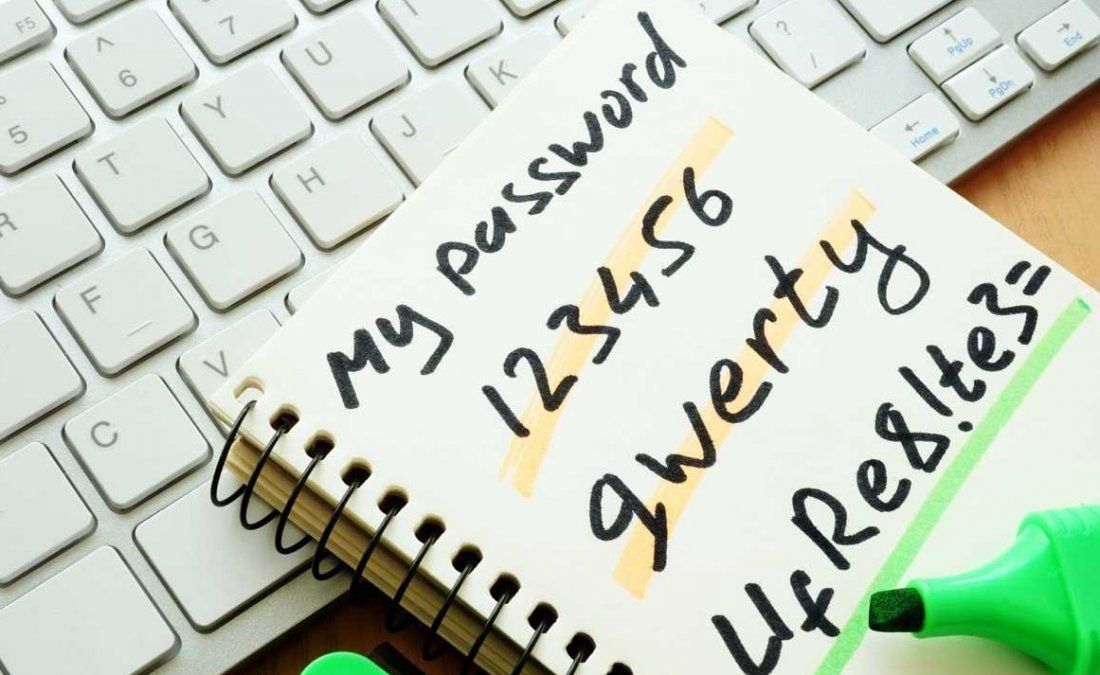 My password
123456
qwerty
UfRe8!te3=
F5
5
^
6
7
R
T
Y
U
I
F
G
H
J
K
C
V
?
/
PgUp
PgDn
Home
End